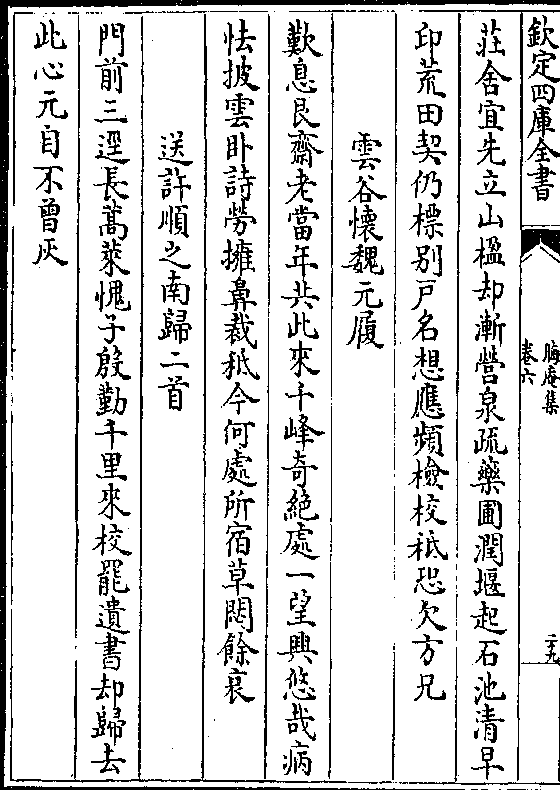 欽定四庫全書
晦庵集
卷六
二十九
莊舍宜先立山楹却漸營泉疏藥圃潤堰起石池清早
印荒田契仍標别户名想應頻檢校秪恐欠方兄
雲谷懷魏元履
歎息艮齋老當年共此來千峰奇絶處一望興悠哉病
怯披雲卧詩勞擁鼻裁秪今何處所宿草閟餘哀
送許順之南歸二首
門前三逕長蒿萊愧子殷勤千里來校罷遺書却歸去
此心元自不曾灰